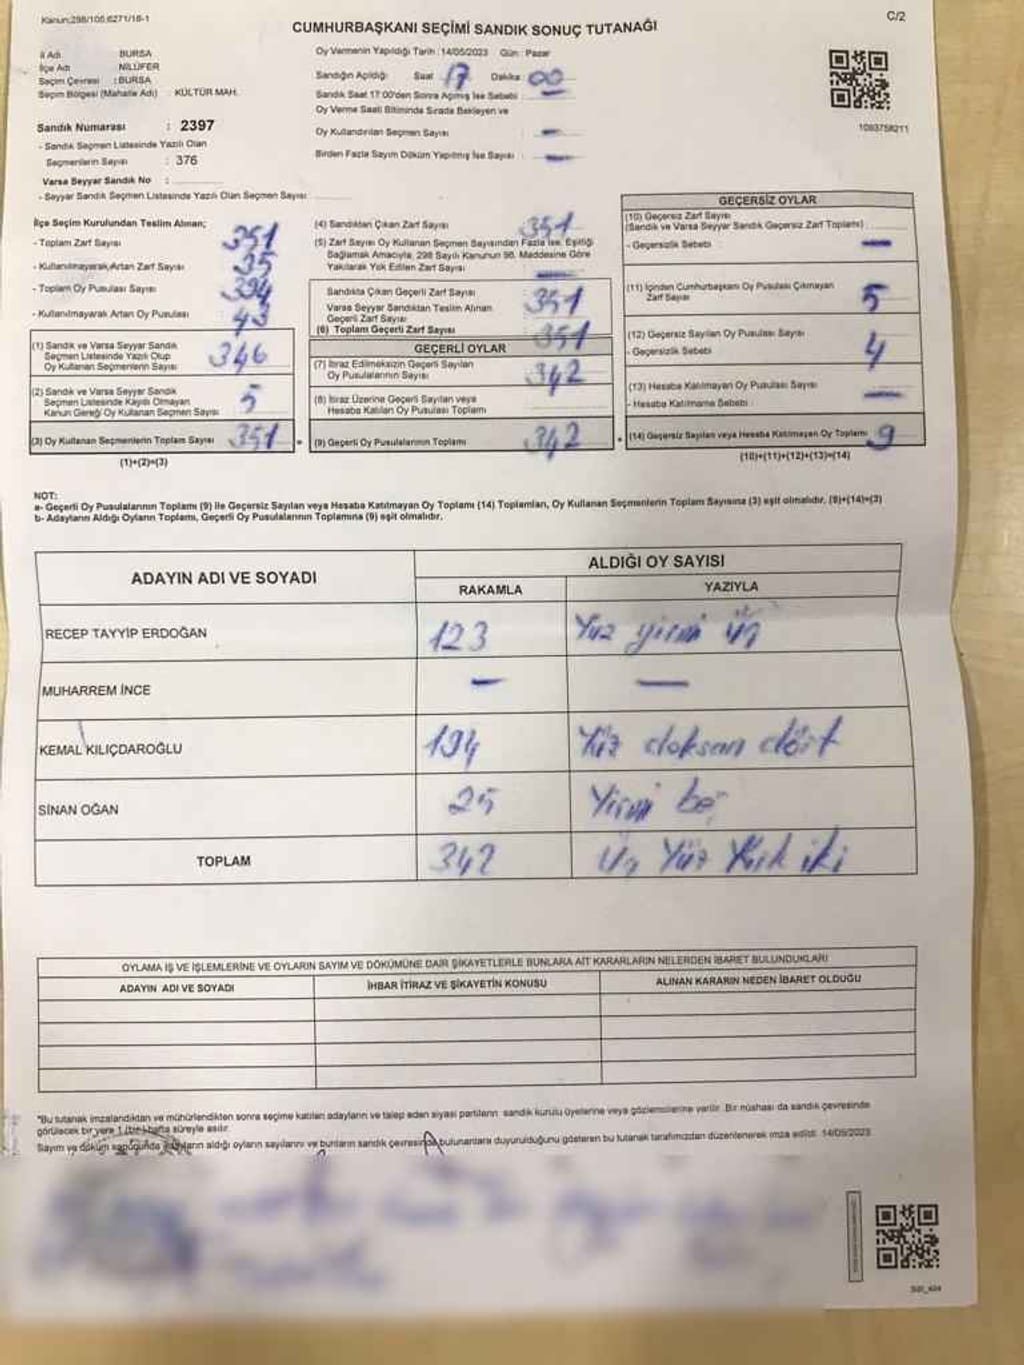 Kanun:298/105,6271/16-1
C/2
CUMHURBAŞKANI SEÇİMİ SANDIK SONUÇ TUTANAĞI
İl Adı BURSA
İlçe Adı NİLÜFER
Seçim Çevresi : BURSA
Seçim Bölgesi (Mahalle Adı) : KÜLTÜR MAH.
Sandık Numarası : 2397
- Sandık Seçmen Listesinde Yazılı Olan
Seçmenlerin Sayısı : 376
Varsa Seyyar Sandık No :
- Seyyar Sandık Seçmen Listesinde Yazılı Olan Seçmen Sayısı
Oy Vermenin Yapıldığı Tarih : 14/05/2023 Gün : Pazar
Sandığın Açıldığı Saat 17 Dakika 00
Sandık Saat 17:00'den Sonra Açmış İse Sebebi —
Oy Verme Saati Bitiminde Sırada Bekleyen ve
Oy Kullandırılan Seçmen Sayısı : —
Birden Fazla Sayım Döküm Yapılmış İse Sayısı : —
1093758211
İlçe Seçim Kurulundan Teslim Alınan;
- Toplam Zarf Sayısı 351
- Kullanılmayarak Artan Zarf Sayısı 35
- Toplam Oy Pusulası Sayısı 394
- Kullanılmayarak Artan Oy Pusulası 43
(1) Sandık ve Varsa Seyyar Sandık
Seçmen Listesinde Yazılı Olup
Oy Kullanan Seçmenlerin Sayısı 346
(2) Sandık ve Varsa Seyyar Sandık
Seçmen Listesinde Kayıtlı Olmayan
Kanun Gereği Oy Kullanan Seçmen Sayısı 5
(3) Oy Kullanan Seçmenlerin Toplam Sayısı 351
(1)+(2)=(3)
(4) Sandıktan Çıkan Zarf Sayısı 351
(5) Zarf Sayısı Oy Kullanan Seçmen Sayısından Fazla İse, Eşitliği
Sağlamak Amacıyla, 298 Sayılı Kanunun 98. Maddesine Göre
Yakılarak Yok Edilen Zarf Sayısı —
Sandıkta Çıkan Geçerli Zarf Sayısı : 351
Varsa Seyyar Sandıktan Teslim Alınan
Geçerli Zarf Sayısı
(6) Toplam Geçerli Zarf Sayısı : 351
GEÇERLİ OYLAR
(7) İtiraz Edilmeksizin Geçerli Sayılan
Oy Pusulalarının Sayısı 342
(8) İtiraz Üzerine Geçerli Sayılan veya
Hesaba Katılan Oy Pusulası Toplamı
= (9) Geçerli Oy Pusulalarının Toplamı 342
GEÇERSİZ OYLAR
(10) Geçersiz Zarf Sayısı
(Sandık ve Varsa Seyyar Sandık Geçersiz Zarf Toplamı)
- Geçersizlik Sebebi —
(11) İçinden Cumhurbaşkanı Oy Pusulası Çıkmayan
Zarf Sayısı 5
(12) Geçersiz Sayılan Oy Pusulası Sayısı
- Geçersizlik Sebebi 4
(13) Hesaba Katılmayan Oy Pusulası Sayısı
- Hesaba Katılmama Sebebi —
+ (14) Geçersiz Sayılan veya Hesaba Katılmayan Oy Toplamı 9
(10)+(11)+(12)+(13)=(14)
NOT:
a- Geçerli Oy Pusulalarının Toplamı (9) ile Geçersiz Sayılan veya Hesaba Katılmayan Oy Toplamı (14) Toplamları, Oy Kullanan Seçmenlerin Toplam Sayısına (3) eşit olmalıdır. (9)+(14)=(3)
b- Adayların Aldığı Oyların Toplamı, Geçerli Oy Pusulalarının Toplamına (9) eşit olmalıdır.
ADAYIN ADI VE SOYADI ALDIĞI OY SAYISI
RAKAMLA YAZIYLA
RECEP TAYYİP ERDOĞAN 123 Yüz yirmi üç
MUHARREM İNCE — —
KEMAL KILIÇDAROĞLU 194 Yüz doksan dört
SİNAN OĞAN 25 Yirmi beş
TOPLAM 342 Üç Yüz Kırk iki
OYLAMA İŞ VE İŞLEMLERİNE VE OYLARIN SAYIM VE DÖKÜMÜNE DAİR ŞİKAYETLERLE BUNLARA AİT KARARLARIN NELERDEN İBARET BULUNDUKLARI
ADAYIN ADI VE SOYADI İHBAR İTİRAZ VE ŞİKAYETİN KONUSU ALINAN KARARIN NEDEN İBARET OLDUĞU
*Bu tutanak imzalandıktan ve mühürlendikten sonra seçime katılan adayların ve talep eden siyasi partilerin sandık kurulu üyelerine veya gözlemcilerine verilir. Bir nüshası da sandık çevresinde
görülecek bir yere 1 (bir) hafta süreyle asılır.
Sayım ve döküm sonucunda adayların aldığı oyların sayılarını ve bunların sandık çevresinde bulunanlara duyurulduğunu gösteren bu tutanak tarafımızdan düzenlenerek imza edildi. 14/05/2023